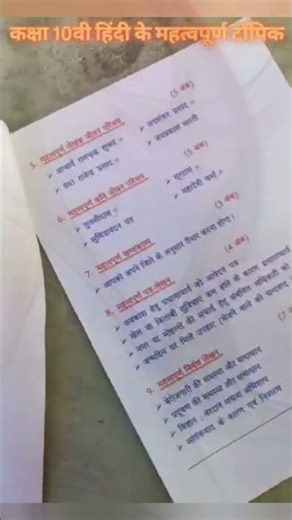 कक्षा 10वी हिंदी के महत्वपूर्ण टॉपिक
5. महत्वपूर्ण लेखक जीवन परिचय (5 अंक)
➤ आचार्य रामचन्द्र शुक्ल ➤ जयशंकर प्रसाद
➤ डॉ० राजेन्द्र प्रसाद ➤ जयप्रकाश भारती
6. महत्वपूर्ण कवि जीवन परिचय (5 अंक)
➤ तुलसीदास ➤ सूरदास
➤ सुमित्रानंदन पंत ➤ महादेवी वर्मा
7. महत्वपूर्ण खण्डकाव्य (3 अंक)
➤ आपको अपने जिले के अनुसार तैयार करना होगा।
8. महत्वपूर्ण पत्र लेखन (4 अंक)
➤ अवकाश हेतु प्रधानाचार्य को आवेदन पत्र
➤ खेल या किताबी सुविधाएं कम होने के कारण प्रधानाचार्य
➤ नगर या मोहल्ला की सफाई हेतु संबंधित अधिकारी को
➤ जन्मदिन पर मिले उपहार भेजने वाले को धन्यवाद
9. महत्वपूर्ण निबंध लेखन (7
➤ बेरोजगारी की समस्या और समाधान
➤ प्रदूषण की समस्या और समाधान
➤ विज्ञान : वरदान अथवा अभिशाप
➤ आतंकवाद के कारण एवं निवारण